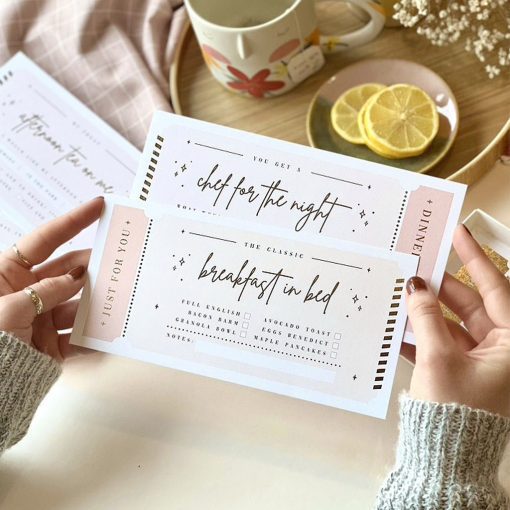 MY TREAT
afternoon tea on me
YOU GET A
chef for the night
DINNER
THE CLASSIC
breakfast in bed
JUST FOR YOU
FULL ENGLISH
BACON BARM
GRANOLA BOWL
AVOCADO TOAST
EGGS BENEDICT
MAPLE PANCAKES
NOTES: